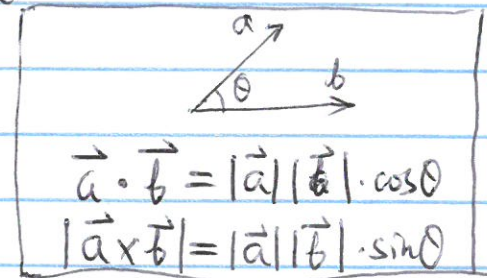 a
θ
b
a⃗ · b⃗ = |a⃗| |b⃗| · cosθ
|a⃗ × b⃗| = |a⃗| |b⃗| · sinθ